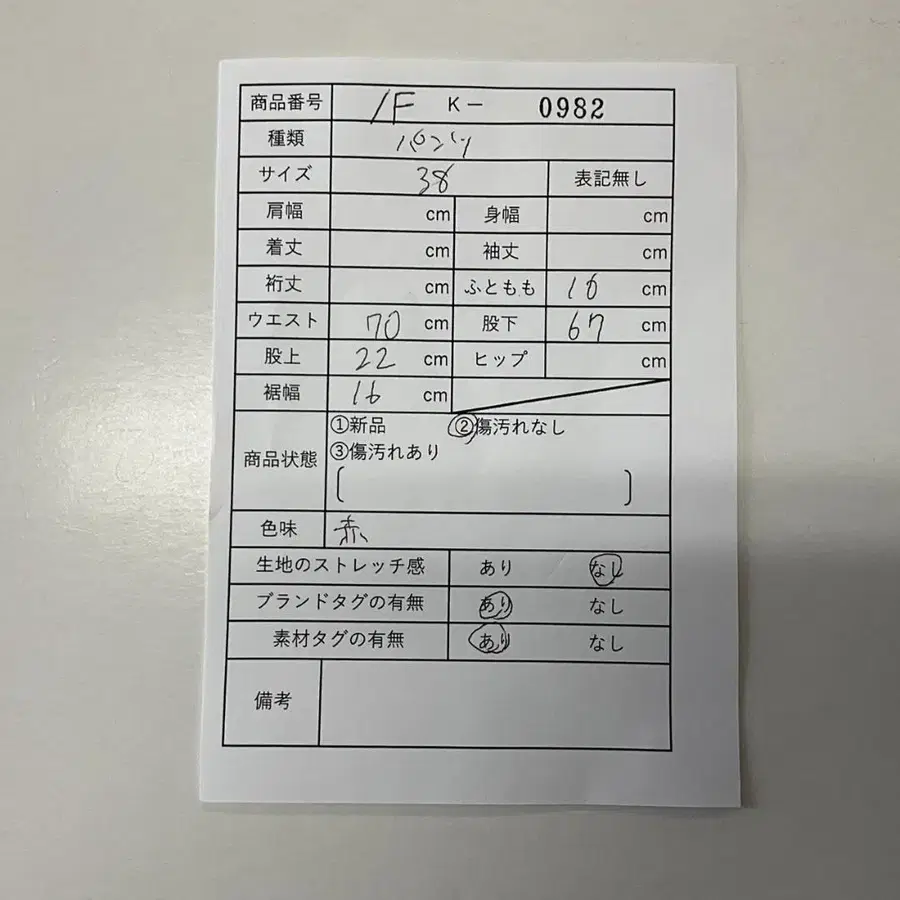 商品番号 1F K- 0982
種類 パンツ
サイズ 38 表記無し
肩幅 cm 身幅 cm
着丈 cm 袖丈 cm
裄丈 cm ふともも 16 cm
ウエスト 70 cm 股下 67 cm
股上 22 cm ヒップ cm
裾幅 16 cm
商品状態 ①新品 ②傷汚れなし
③傷汚れあり
[ ]
色味 赤
生地のストレッチ感 あり なし
ブランドタグの有無 あり なし
素材タグの有無 あり なし
備考